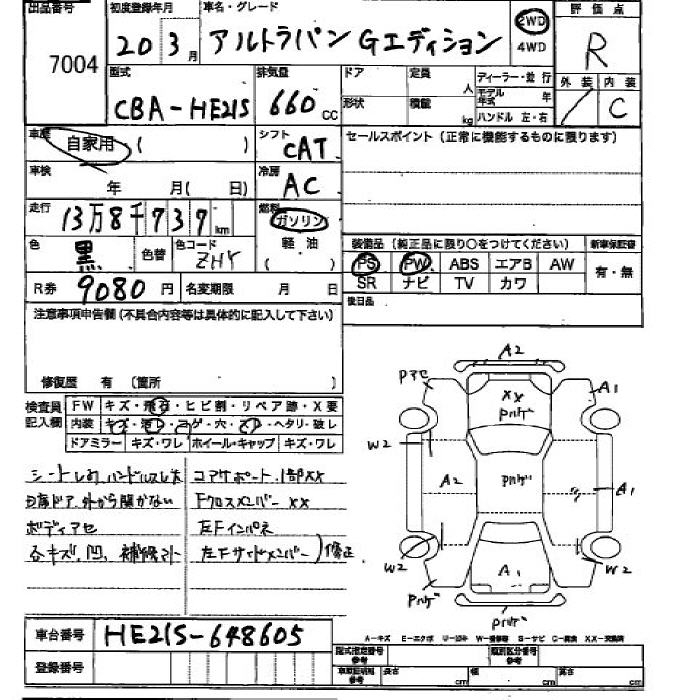 出品番号 初度登録年月 車名・グレード 評価点
7004 20 3月 アルトラパン Gエディション 2WD 4WD R
型式 排気量 ドア 定員 人 ディーラー・並行 外装 内装
CBA-HE21S 660cc 形状 積載 kg モデル年式 年 ハンドル 左・右 C
車歴 自家用 ( ) シフト CAT セールスポイント (正常に機能するものに限ります)
車検 年 月( 日) 冷房 AC
走行 13万8千737km 燃料 ガソリン 軽油 ( )
色 黒 色替 色コード ZHY
装備品 (純正品に限り○をつけてください) 新車保証書
PS PW ABS エアB AW 有・無
SR ナビ TV カワ
R券 9080円 名変期限 月 日 後日品
注意事項申告欄 (不具合内容等は具体的に記入して下さい)
修復歴 有 (箇所 )
検査員記入欄 FW キズ・飛石・ヒビ割・リペア跡・X要
内装 キズ・汚レ・コゲ・穴・ ・ヘタリ・破レ
ドアミラー キズ・ワレ ホイール・キャップ キズ・ワレ
シート ハンドルスレ大
ドア.外から開かない
ボディアセ
各キズ.凹、補修
コアサポート.1部XX
FクロスメンバーXX
左Fインパネ
左Fサイドメンバー)修正
A2
Pアセ
XX
Pハゲ
A1
W2
A2
Pハゲ
A1
W2
W2
Pハゲ
A1
Pハゲ
Pハゲ
車台番号 HE21S-648605
A-キズ E-エクボ U-凹 W- S-サビ C-腐食 XX-交換済
登録番号
型式指定番号 参考 類別区分番号 参考
参考 長さ cm 幅 cm 高さ cm